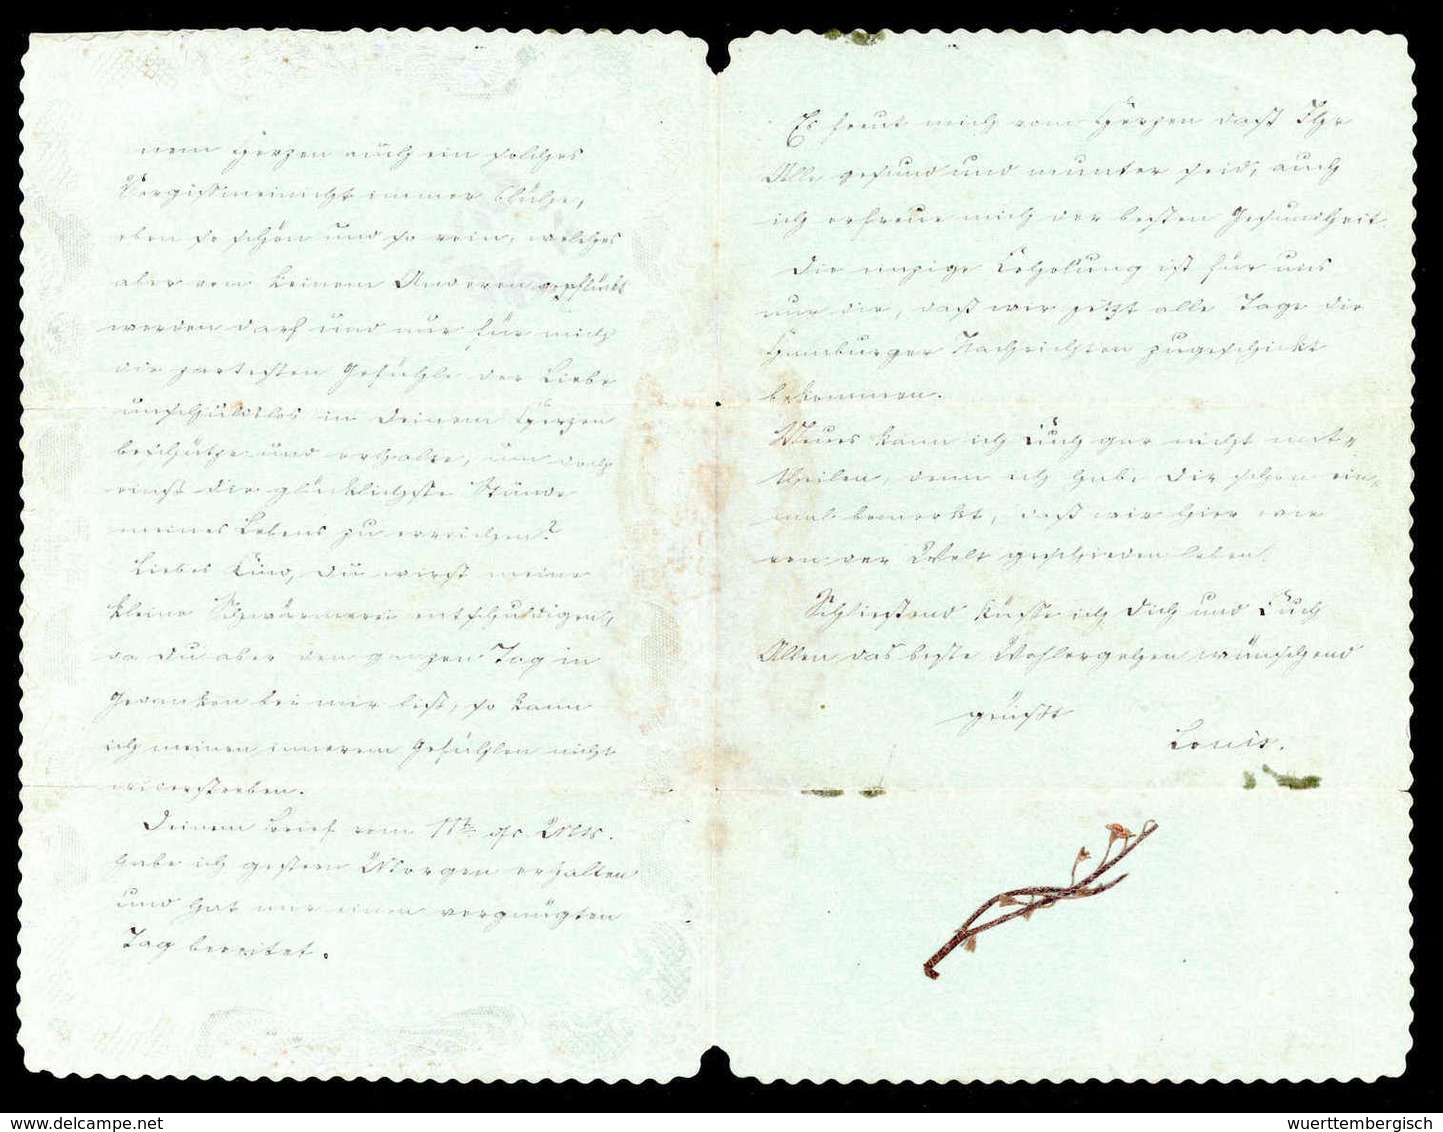 nem Herzen auch ein solches
Vergissmeinnicht immer blühe,
eben so schön und so rein, welches
aber von keinem Anderen gepflückt
werden darf und nur für mich
die zartesten Gefühle der Liebe
unschuldslos in Deinem Herzen
beschütze und erhalte, um doch
einst die glücklichste Stunde
meines Lebens zu erreichen?
Liebes Kind, Du wirst meine
kleine Schwärmerei entschuldigen,
da Du aber den ganzen Tag in
Gedanken bei mir bist, so kann
ich meinen inneren Gefühlen nicht
widerstreben.
Deinen Brief vom 11t. ds Mts.
habe ich gestern Morgen erhalten
und hat mir einen vergnügten
Tag bereitet.
Es freut mich vom Herzen daß Ihr
Alle gesund und munter seid, auch
ich erfreue mich der besten Gesundheit.
Die einzige Erholung ist für uns
nur die, daß wir jetzt alle Tage die
Hamburger Nachrichten zugeschickt
bekommen.
Neues kann ich Euch gar nicht mit-
theilen, denn ich habe Dir schon ein-
mal bemerkt, daß wir hier wie
von der Welt geschieden leben.
Schließend küsse ich Dich und Euch
Allen das beste Wohlergehen wünschend
grüßt
Louis.
wuerttembergisch